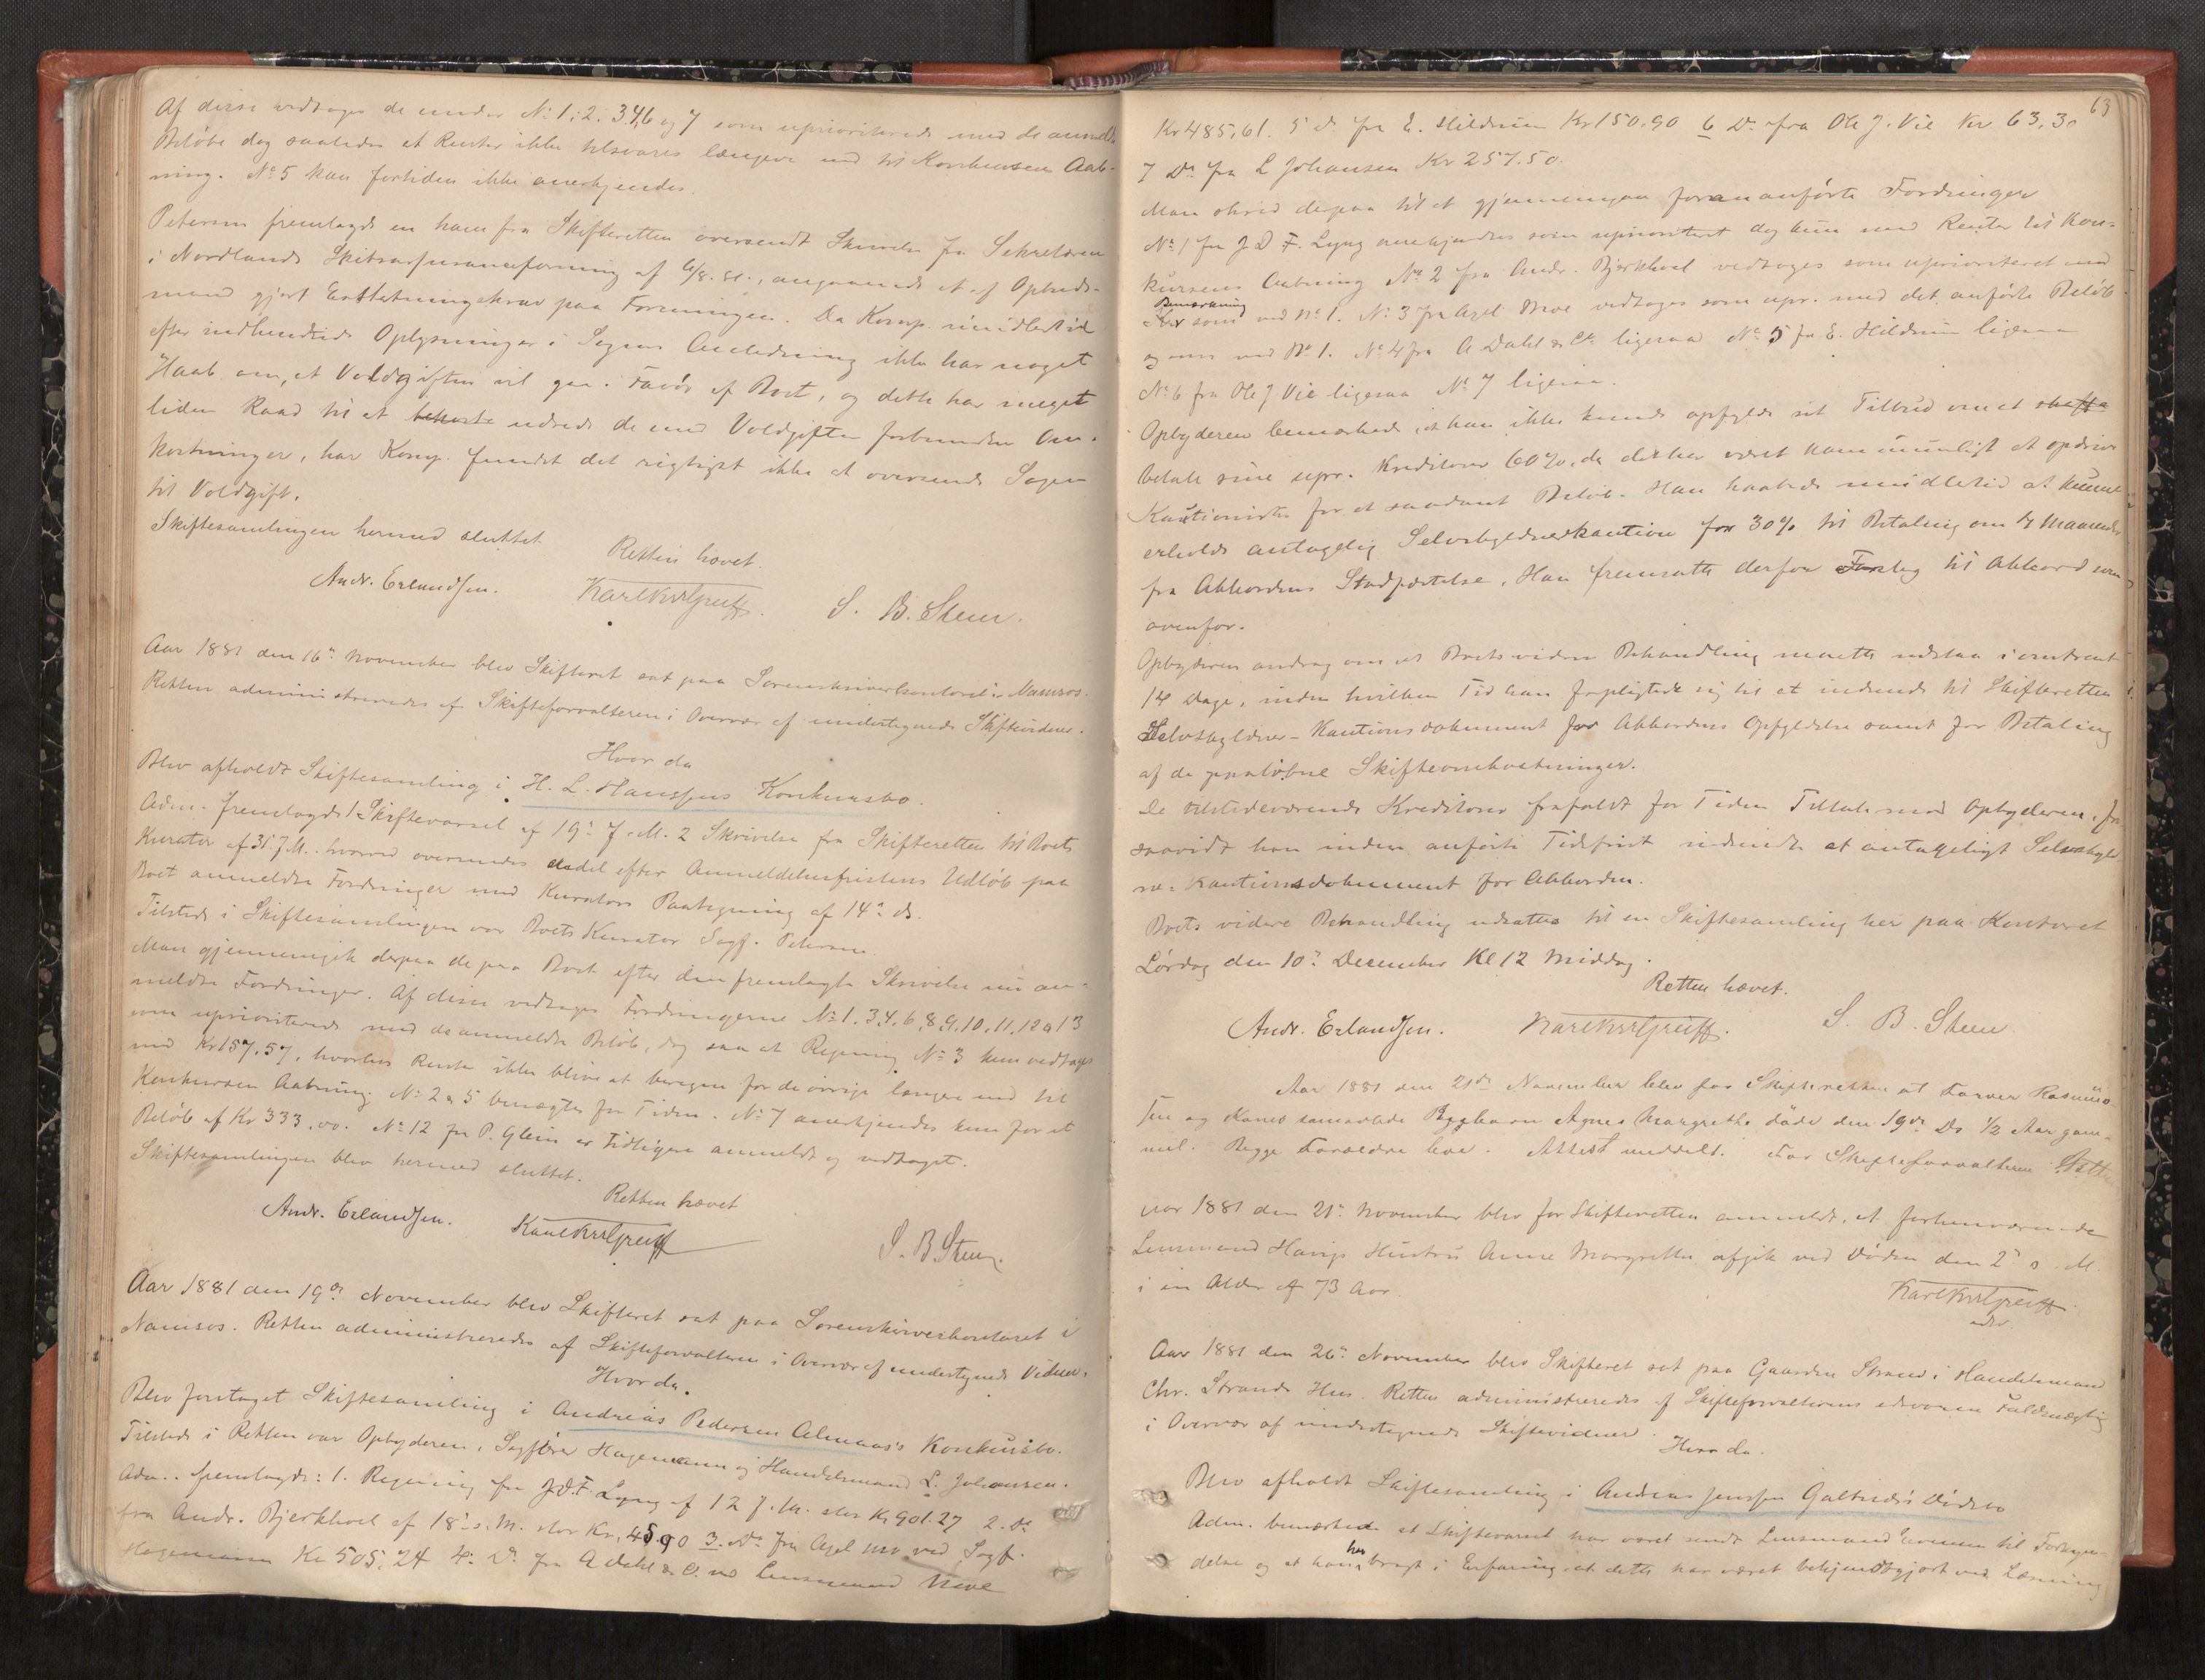 Af disse vedtoges de under No 1, 2, 3, 4, 6 og 7 som uprioriterede med de anmeldte
Beløbe dog saaledes at Renter ikke tilsvares længere end til Konkursens Aab-
ning. No 5 kan fortiden ikke anerkjendes.
Petersen fremlagde en ham fra Skifteretten oversendt Skrivelse fra Sekretæren
i Nordlands Skibsassuranceforening af 6/8. 81., angaaende et af Opbuds-
mand gjort Erstatningskrav paa Foreningen. Da Komp. imidlertid
efter indhentede Oplysninger i Sagens Anledning ikke har noget
Haab om, at Voldgiften vil gaa i Favør af Boet, og dette har meget
liden Raad til at bekoste udrede de med Voldgiften forbundne Om-
kostninger, har Komp. fundet det rigtigst ikke at oversende Sagen
til Voldgift.
Skiftesamlingen hermed sluttet.
Retten hævet.
Andr. Erlandsen. S. B. Steen.
Aar 1881 den 16de November blev Skifteret sat paa Sorenskriverkontoret i Namsos.
Retten administreredes af Skifteforvalteren i Overvær af undertegnede Skiftevidner.
Hvor da
Blev afholdt Skiftesamling i H. L. Hanssens Konkursbo.
Adm. fremlagde 1 Skiftevarsel af 19de f. M. 2 Skrivelse fra Skifteretten til Boets
Kurator af 31 f. M. hvorved oversendes endel efter Anmeldelsesfristens Udløb paa
Boet anmeldte Fordringer med Kurators Paategning af 14de ds.
Tilstede i Skiftesamlingen var Boets Kurator Sagf. Petersen.
Man gjennemgik derpaa de paa Boet efter den fremlagte Skrivelse nu an-
meldte Fordringer. Af disse vedtoges Fordringerne No 1, 3, 4, 6, 8, 9, 10, 11, 12 a 13
som uprioriterede med de anmeldte Beløb, dog saa at Regning No 3 kun vedtoges
med Kr 157.57, hvorhos Renter ikke bliver at beregne for de øvrige længer end til
Konkursens Aabning. No 2 & 5 benægtes for Tiden. No 7 anerkjendes kun for et
Beløb af Kr 333.00. No 12 fra P. Glein er Tidligere anmeldt og vedtaget.
Skiftesamlingen blev hermed sluttet.
Retten hævet
Andr. Erlandsen. S. B. Steen.
Aar 1881 den 19de November blev Skifteret sat paa Sorenskriverkontoret i
Namsos. Retten administreredes af Skifteforvalteren i Overvær af undertegnede Vidner.
Hvor da.
Blev foretaget Skiftesamling i Andreas Pedersen Almaas's Konkursbo.
Tilstede i Retten var Opbyderen, Sagfører Hagemann og Handelsmand L. Johansen.
Adm. fremlagde: 1. Regning fra J. D. F. Lyng af 12 f. M. stor Kr 901.27 2. Do
fra Andr. Bjerkhoel af 18 s. M. stor Kr. 3. Do fra Axel Moe ved Sagf.
Hagemann Kr 505.24 4. Do fra A Dahl & Co. ved Lensmand Moe
63
Kr 485,61. 5 Do fra E. Hildrum Kr 150.90 6 Do fra Ole J. Vie Kr 63,30
7 Do fra L Johansen Kr 257.50.
Man skred derpaa til at gjennemgaa forananførte Fordringer
No 1 fra J D F. Lyng anerkjendtes som uprioriteret dog kun med Renter til Kon-
kursens Aabning No 2 fra Andr. Bjerkhoel vedtoges som uprioriteret med
Bemærkning
som ved No 1. No 3 fra Axel Moe vedtoges som upr. med det anførte Beløb
og som ved No 1. No 4 fra A Dahl & Co ligesaa No 5 fra E. Hildrum ligesaa
No 6 fra Ole J Vie ligesaa No 7 ligesaa.
Opbyderen bemærkede, at han ikke kunde opfylde sit Tilbud om at skaffe
betale sine upr. Kreditorer 60%, da det har været ham umuligt at opdrive
Kautionister for et saadant Beløb. Han haabede imidlertid at kunne
erholde antagelig Selvskyldnerkaution for 30% til Betaling om Maaneder
fra Akkordens Stadfæstelse. Han fremsatte derfor Forslag til Akkord som
ovenfor.
Opbyderen androg om at Boets videre Behandling maatte udstaa i omtrent
14 Dage, inden hvilken Tid han forpligtede sig til at indsende til Skifteretten
Selvskyldner-Kautionsdokument for Akkordens Opfyldelse samt for Betaling
af de paaløbne Skifteomkostninger.
De tilstedeværende Kreditorer frafaldt for Tiden Tiltale mod Opbyderen, for-
saavidt han inden anførte Tidsfrist indsendte et antageligt Selvskyld-
ner-Kautionsdokument for Akkorden.
Boets videre Behandling udsattes til en Skiftesamling her paa Kontoret
Lørdag den 10de December Kl 12 Middag.
Retten hævet.
Andr. Erlandsen. S. B. Steen
Aar 1881 den 21de November blev for Skifteretten at Farver Rasmus-
sen og Kones Pigebarn Agnes Margrethe døde den 19de Ds 1/2 Aar gam-
mel. Begge Forældre leve. Attest meddelt. For Skifteforvalteren
Aar 1881 den 21de November blev for Skifteretten anmeldt, at forhenværende
Lensmand Havigs Hustru Anne Margrethe afgik ved Døden den 2de s. M.
i en Alder af 73 Aar.
Aar 1881 den 26de November blev Skifteret sat paa Gaarden Strand i Handelsmand
Chr. Strands Hus. Retten administreredes af Skifteforvalterens edsvorne Fuldmægtig
i Overvær af undertegnede Skiftevidner.
Hvor da.
Blev afholdt Skiftesamling i Andreas Jenssen Galtnes's Dødsbo
Adm. bemærkede at Skiftevarsel har været sendt Lensmand til Forkyn-
delse og at han har bragt i Erfaring at dette har været bekjendtgjort ved Læsning